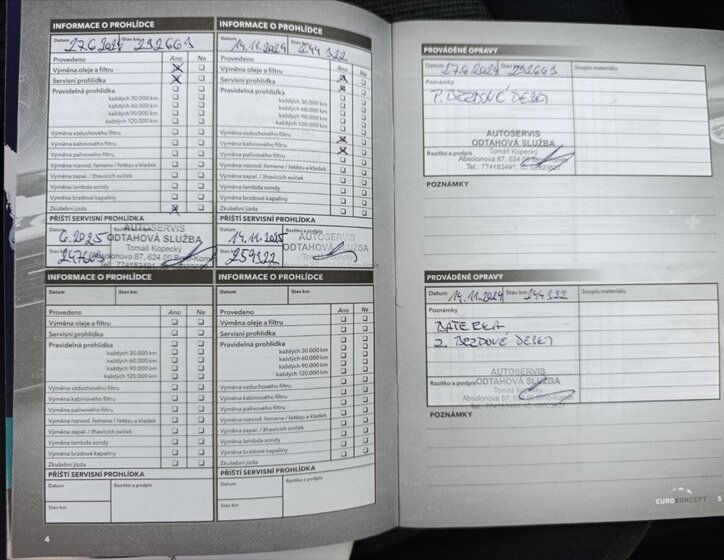 INFORMACE O PROHLÍDCE
Datum 27.6.2024 Stav km 232663
Provedeno Ano Ne
Výměna oleje a filtru
Servisní prohlídka
Pravidelná prohlídka
každých 30.000 km
každých 60.000 km
každých 90.000 km
každých 120.000 km
Výměna vzduchového filtru
Výměna kabinového filtru
Výměna palivového filtru
Výměna rozvod. řemene / řetězu a kladek
Výměna zapal. / žhavicích svíček
Výměna lambda sondy
Výměna brzdové kapaliny
Zkušební jízda
PŘÍŠTÍ SERVISNÍ PROHLÍDKA
Datum Razítko a podpis
6.2025
AUTOSERVIS
ODTAHOVÁ SLUŽBA
Tomáš Kopecký
Stav km
Tel.: 774183491
INFORMACE O PROHLÍDCE
Datum 14.11.2024 Stav km 244322
Provedeno Ano Ne
Výměna oleje a filtru
Servisní prohlídka
Pravidelná prohlídka
každých 30.000 km
každých 60.000 km
každých 90.000 km
každých 120.000 km
Výměna vzduchového filtru
Výměna kabinového filtru
Výměna palivového filtru
Výměna rozvod. řemene / řetězu a kladek
Výměna zapal. / žhavicích svíček
Výměna lambda sondy
Výměna brzdové kapaliny
Zkušební jízda
PŘÍŠTÍ SERVISNÍ PROHLÍDKA
Datum Razítko a podpis
14.11.2025
AUTOSERVIS
ODTAHOVÁ SLUŽBA
Tomáš Kopecký
Stav km 259322
INFORMACE O PROHLÍDCE
Datum Stav km
Provedeno Ano Ne
Výměna oleje a filtru
Servisní prohlídka
Pravidelná prohlídka
každých 30.000 km
každých 60.000 km
každých 90.000 km
každých 120.000 km
Výměna vzduchového filtru
Výměna kabinového filtru
Výměna palivového filtru
Výměna rozvod. řemene / řetězu a kladek
Výměna zapal. / žhavicích svíček
Výměna lambda sondy
Výměna brzdové kapaliny
Zkušební jízda
PŘÍŠTÍ SERVISNÍ PROHLÍDKA
Datum Razítko a podpis
Stav km
INFORMACE O PROHLÍDCE
Datum Stav km
Provedeno Ano Ne
Výměna oleje a filtru
Servisní prohlídka
Pravidelná prohlídka
každých 30.000 km
každých 60.000 km
každých 90.000 km
každých 120.000 km
Výměna vzduchového filtru
Výměna kabinového filtru
Výměna palivového filtru
Výměna rozvod. řemene / řetězu a kladek
Výměna zapal. / žhavicích svíček
Výměna lambda sondy
Výměna brzdové kapaliny
Zkušební jízda
PŘÍŠTÍ SERVISNÍ PROHLÍDKA
Datum Razítko a podpis
Stav km
4
PROVÁDĚNÉ OPRAVY
Datum 27.6.2024 Stav km 232663 Soupis materiálu
Poznámky
P. BRZDOVÉ DESKY
AUTOSERVIS
ODTAHOVÁ SLUŽBA
Razítko a podpis Tomáš Kopecký
Absolonova 87, 624 00
Tel.: 774183491
POZNÁMKY
PROVÁDĚNÉ OPRAVY
Datum 14.11.2024 Stav km 244322 Soupis materiálu
Poznámky
BATERKA
Z. BRZDOVÉ DESKY
AUTOSERVIS
Razítko a podpis ODTAHOVÁ SLUŽBA
Tomáš Kopecký
Absolonova 87, 624 00
POZNÁMKY
EUROKONCEPT 5